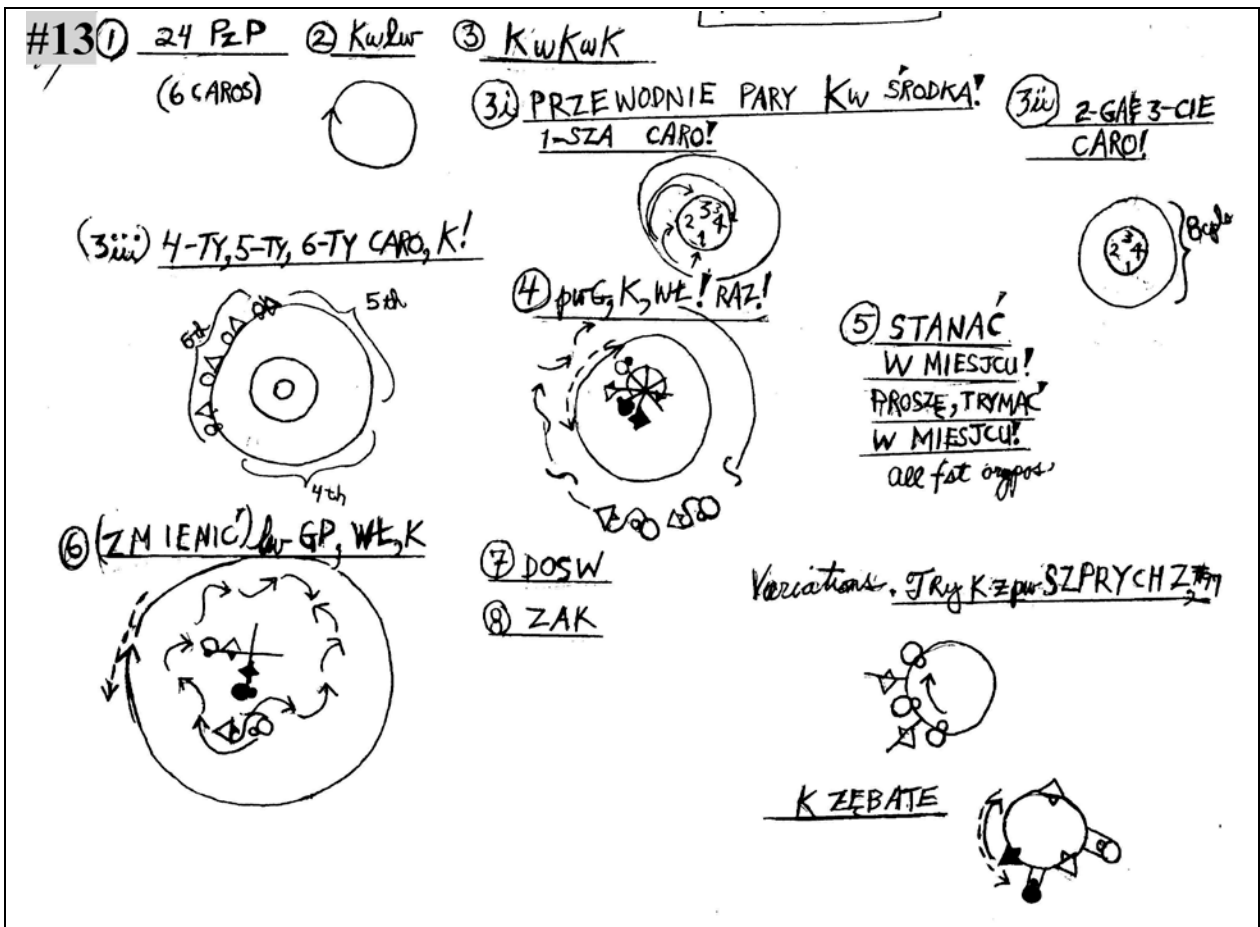 #13 ① 24 PzP
(6 CAROS)
② Kwlw
③ KwKwK
③i PRZEWODNIE PARY Kw ŚRODKA!
1-SZA CARO!
2 3 3 4 1
③ii 2-GA & 3-CIE
CARO!
2 3 4 1
8 cpls
(3iii) 4-TY, 5-TY, 6-TY CARO, K!
6th
5th
4th
④ pwG, K, WŁ! RAZ!
⑤ STANAĆ
W MIESJCU!
PROSZĘ, TRYMAĆ
W MIESJCU!
all fst
⑥ (ZMIENIĆ) lw GP, WŁ, K
⑦ DOSW
⑧ ZAK
Variations. TRy K z pw SZPRYCHZ,
K ZĘBATE